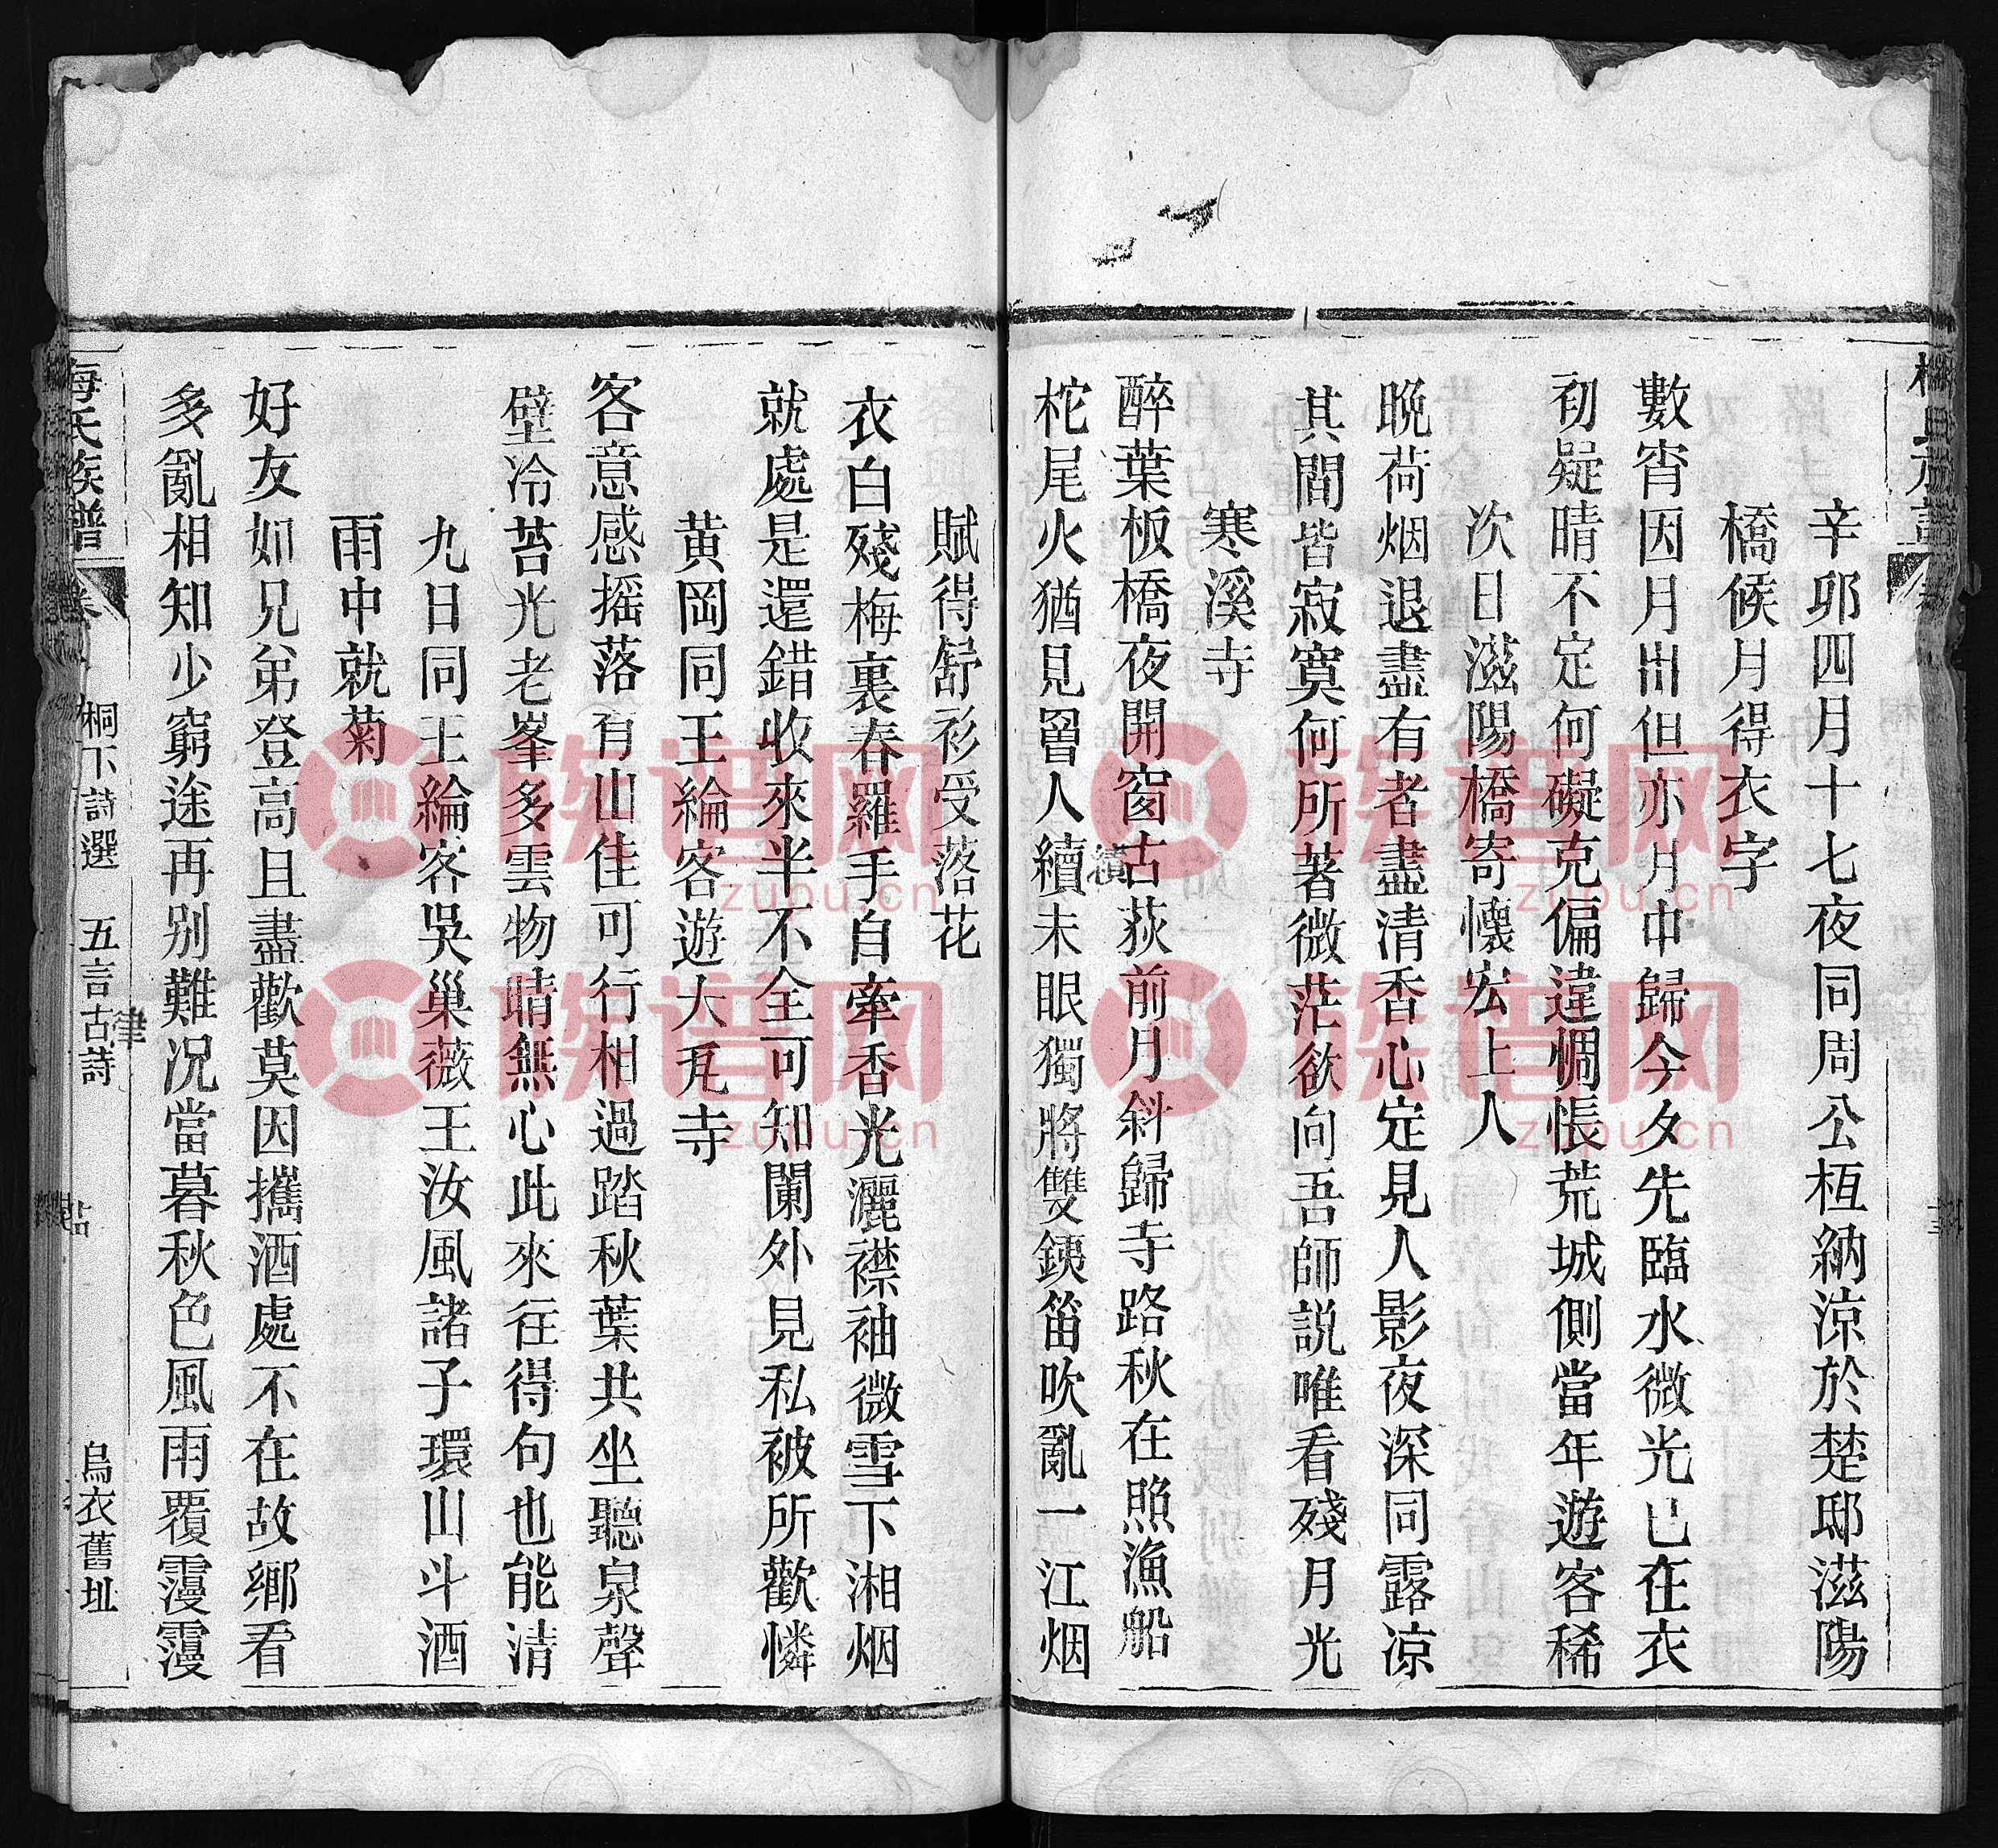 辛卯四月十七夜同周公桓納涼於楚邸滋陽
橋候月得衣字
數宵因月出但亦月中歸今夕先臨水微光已在衣
初疑晴不定何礙克偏違惆悵荒城側當年遊客稀
次日滋陽橋寄懷宏上人
晩荷烟退盡有者盡清香心定見人影夜深同露凉
其間皆寂寞何所著微茫欲向吾師説唯看殘月光
寒溪寺
醉葉板橋夜開窗古荻前月斜歸寺路秋在照漁船
柁尾火猶見罾人續未眼獨將雙銕笛吹亂一江烟
續
賦得舒衫受落花
衣白殘梅裏春羅手自牽香光灑襟袖微雪下湘烟
就處是還錯收來半不全可知闌外見私被所歡憐
黄岡同王綸客遊大㐬寺
客意感摇落有山佳可行相過踏秋葉共坐聽泉聲
壁冷苔光老峯多雲物晴無心此來往得句也能清
九日同王綸客吳巢薇王汝風諸子環山斗酒
雨中就菊
好友如兄弟登高且盡歡莫因攜酒處不在故鄉看
多亂相知少窮途再别難况當暮秋色風雨覆霪霪
梅氏族譜
卷
桐下詩選 五言古詩
律
烏衣舊址
族谱网
zupu.cn
族谱网
zupu.cn
族谱网
zupu.cn
族谱网
zupu.cn